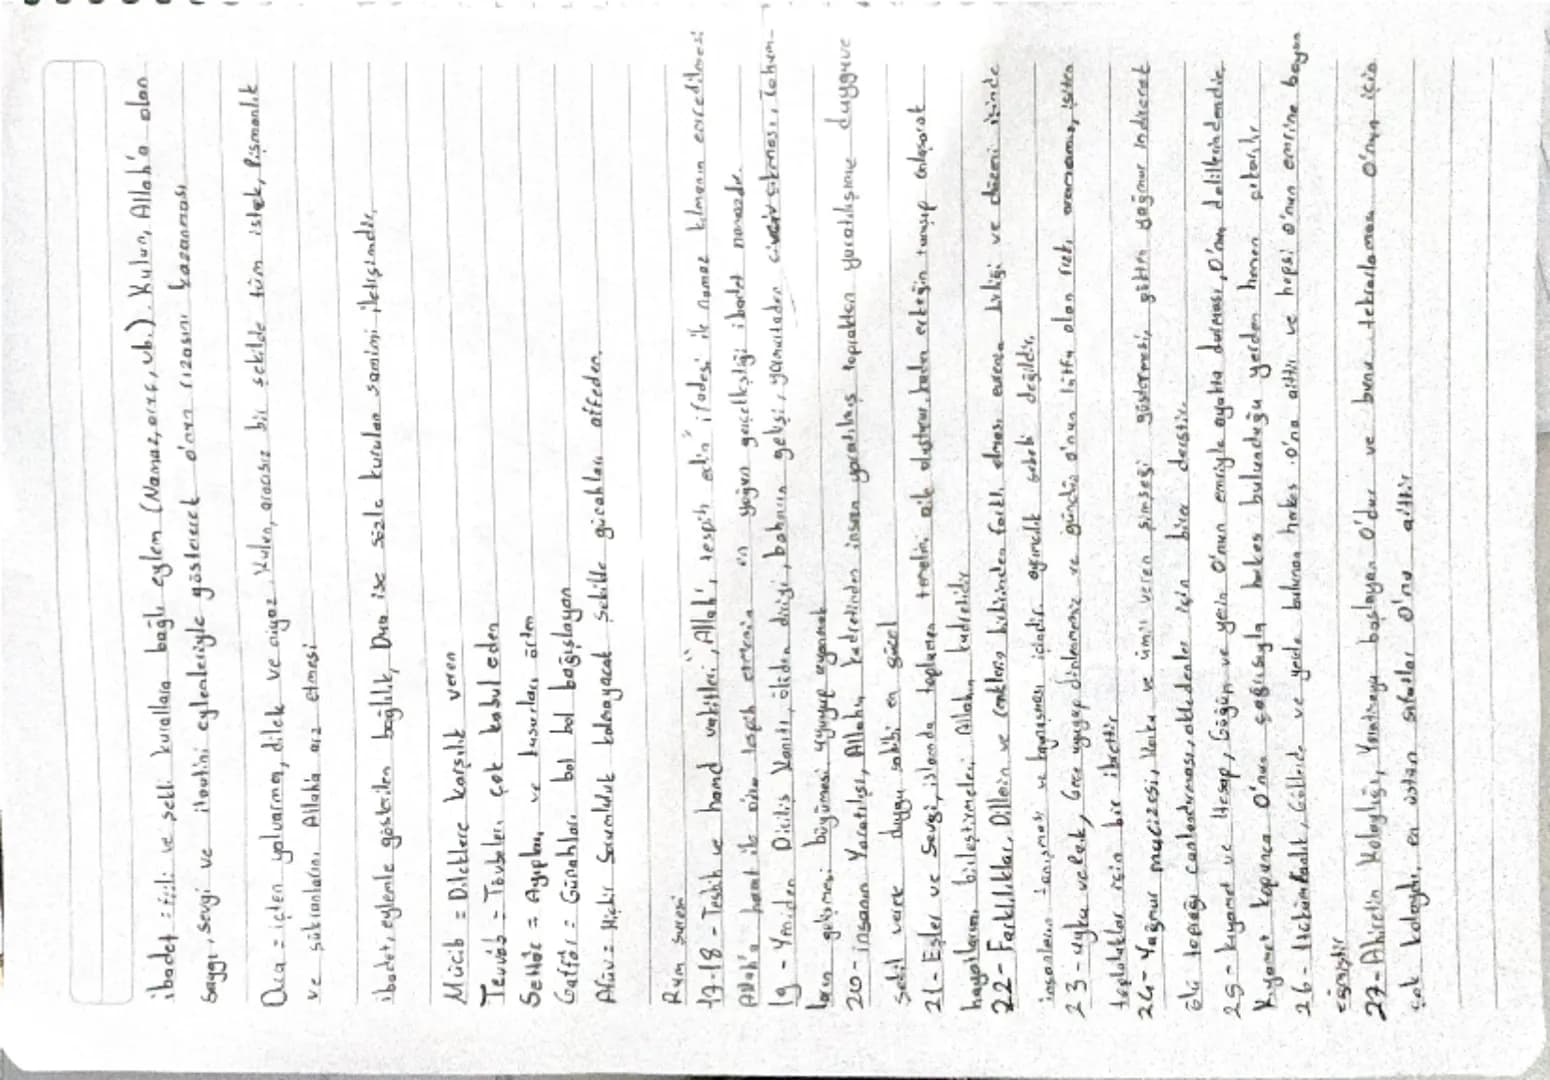 ibadet : özel ve şekli kurallara bağlı eylem (Namaz, oruç, vb.). Kulun, Allah'a olan
saygı, sevgi ve itaatini eylemleriyle göstererek o'nun rızasını kazanması
Dua = içten yalvarma, dilek ve niyaz. Kulun, aracısız bir şekilde tüm istek, Pişmanlık
ve şükranlarını Allaha arz etmesi
ibadet, eylemle gösterilen bağlılık, Dua ise sözle kurulan samimi iletişimdir.
Mücib = Dileklere karşılık veren
Tevvab = Tövbeleri çok kabul eden
Settâr = Ayıpları ve kusurları örten
Gaffâr = Günahları bol bol bağışlayan
Afüv = Hiçbir Sorumluluk kalmayacak şekilde günahları affeden.
Rum suresi
17-18 - Tesbih ve hamd vakitleri, Allah'ı tespih edin" ifadesi ile namaz kılmanın emredilmesi
Allah'a hamt ile tespih etmenin en yoğun gerçekleştiği ibadet namazdır.
19 - Yeniden Diriliş Kanıtı, ölüden diriyi, baharın gelişi, yumurtadan civciv çıkması, tohum-
ların gelişmesi büyümesi uyuyup uyanmak
20 - insanın Yaratılışı, Allahın kudretinden insanı yaratılış topraktan yaratılışına duygu ve
şekil vererek duygu sahibi en güzel
21 - Eşler ve Sevgi, islamda toplumun temelini aile oluşturur, kadın erkeğin tanışıp anlaşarak
hayatlarını birleştirmeleri Allahın kudretidir
22 - Farklılıklar, Dillerin ve renklerin birbirinden farklı olması evrenin birliği ve düzeni içinde
insanların tanışması ve kaynaşması içindir ayrımcılık sebebi değildir.
23 - uyku ve Rızk, Gece uyuyup dinlenmemiz ve gündüz o'nun lütfu olan rızkı aramamız, işiten
topluluklar için bir ibrettir
24 - Yağmur mucizesi, korku ve umut veren şimşeği göstermesi, gökten yağmur indirerek
ölü toprağı canlandırması, akledenler için birer derstir.
25 - Kıyamet ve Hesap, Göğün ve yerin O'nun emriyle ayakta durması, O'nun delillerindendir.
Kıyamet kopunca O'nun çağrısıyla herkes bulunduğu yerden hemen çıkarılır
26 - Hükümranlık, Göklerde ve yerde bulunan herkes o'na aittir ve hepsi o'nun emrine boyun
eğmiştir
27 - Ahiretin Kolaylığı, Yaratmaya başlayan O'dur ve bunu tekrarlaması O'nun için
çok kolaydır, en üstün sıfatlar O'na aittir